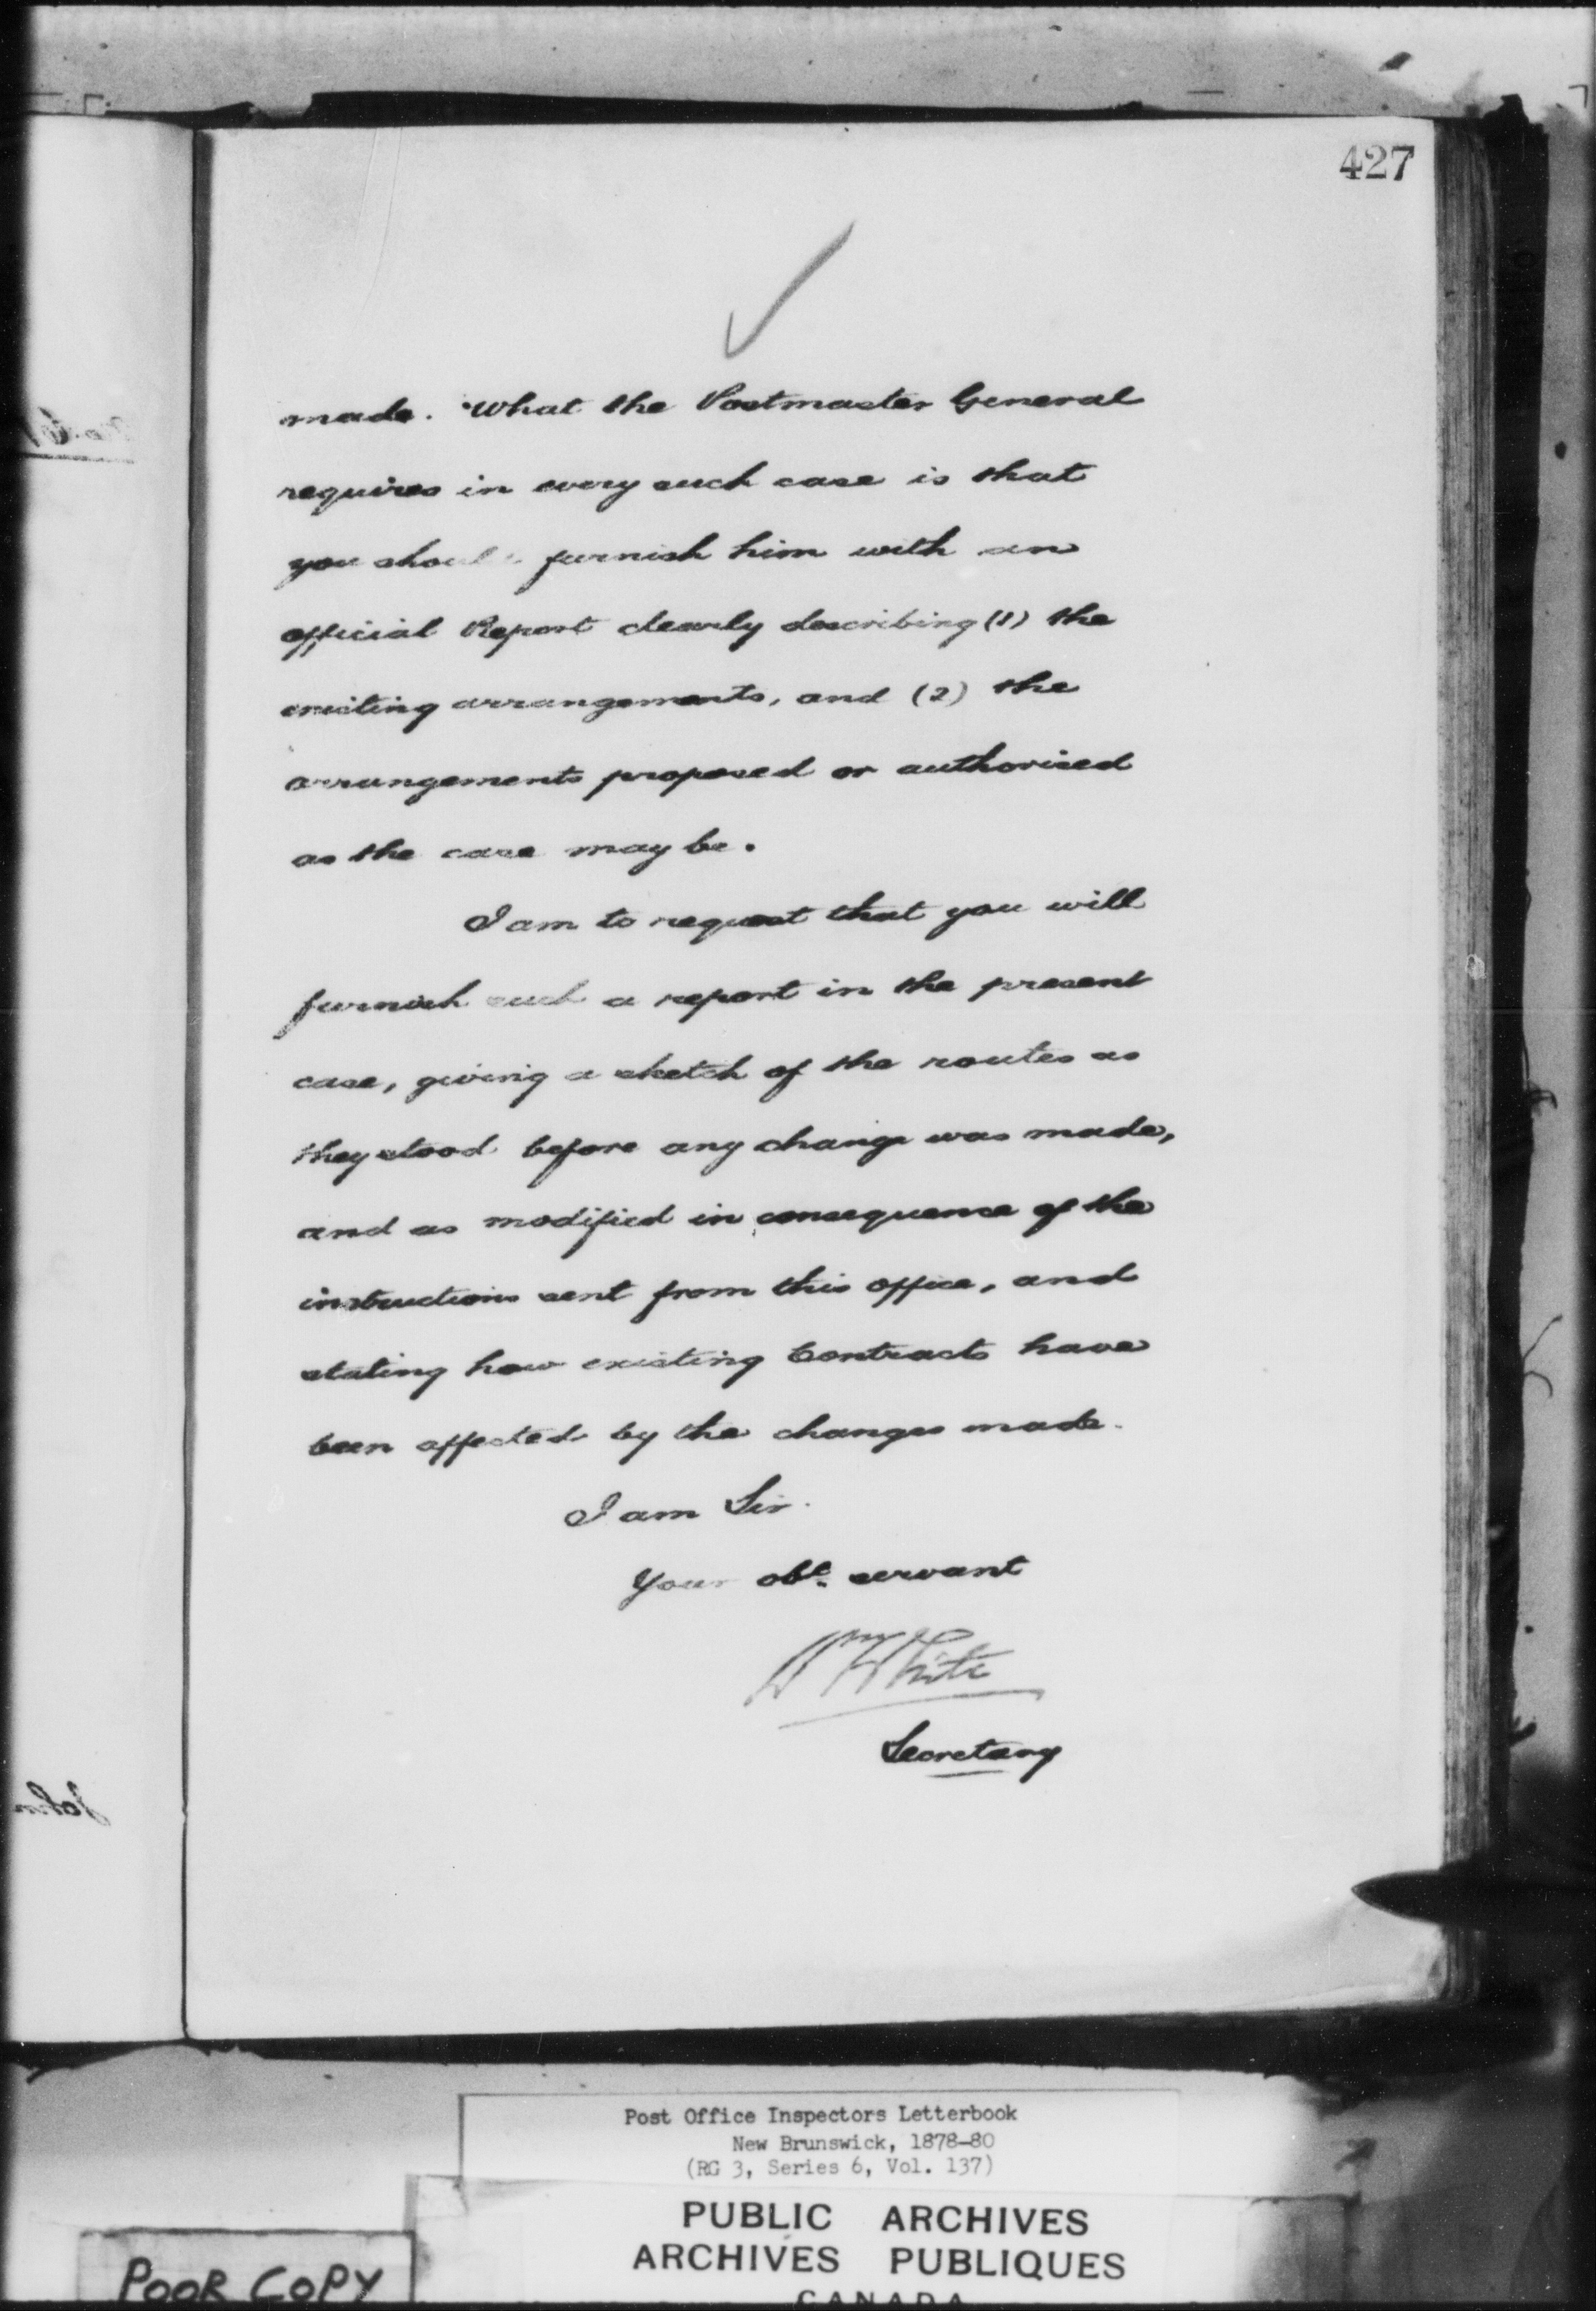 427
made. What the Postmaster General
requires in every such case is that
you should furnish him with an
official Report clearly describing (1) the
existing arrangements, and (2) the
arrangements proposed or authorised
as the case may be.
I am to request that you will
furnish such a report in the present
case, giving a sketch of the routes as
they stood before any change was made,
and as modified in consequence of the
instructions sent from this office, and
stating how existing Contracts have
been affected by the changes made.
I am Sir.
Your obt. servant
Wm White
Secretary
Post Office Inspectors Letterbook
New Brunswick, 1878-80
(RG 3, Series 6, Vol. 137)
PUBLIC ARCHIVES
ARCHIVES PUBLIQUES
CANADA
POOR COPY